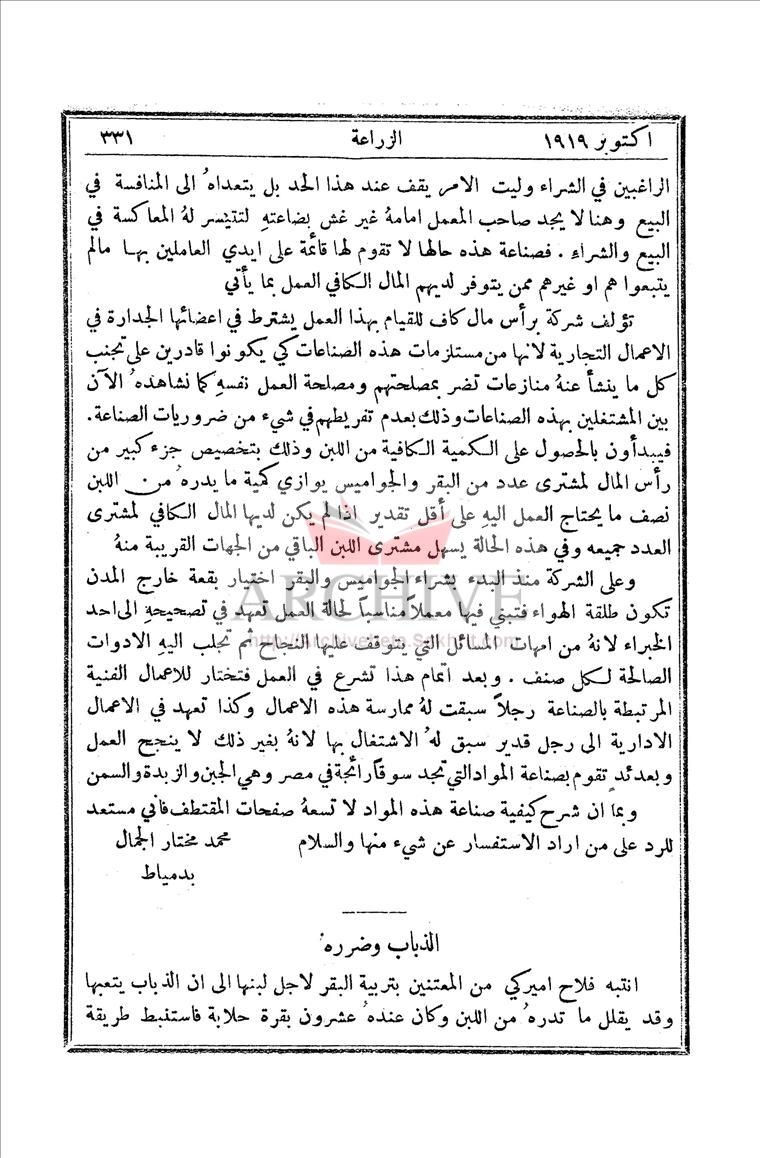 اكتوبر ١٩١٩ الزراعة ٣٣١
الراغبين في الشراء وليت الامر يقف عند هذا الحد بل يتعداهُ الى المنافسة في
البيع وهنا لا يجد صاحب المعمل امامهُ غير غش بضاعتهِ لتتيسر لهُ المعاكسة في
البيع والشراء . فصناعة هذه حالها لا تقوم لها قائمة على ايدي العاملين بها مالم
يتبعوا هم او غيرهم ممن يتوفر لديهم المال الكافي العمل بما يأتي
تؤلف شركة برأس مال كاف للقيام بهذا العمل يشترط في اعضائها الجدارة في
الاعمال التجارية لانها من مستلزمات هذه الصناعات كي يكونوا قادرين على تجنب
كل ما ينشأ عنهُ منازعات تضر بمصلحتهم ومصلحة العمل نفسهِ كما نشاهدهُ الآن
بين المشتغلين بهذه الصناعات وذلك بعدم تفريطهم في شيء من ضروريات الصناعة.
فيبدأون بالحصول على الكمية الكافية من اللبن وذلك بتخصيص جزء كبير من
رأس المال لمشترى عدد من البقر والجواميس يوازي كمية ما يدرهُ من اللبن
نصف ما يحتاج العمل اليهِ على أقل تقدير اذا لم يكن لديها المال الكافي لمشترى
العدد جميعه وفي هذه الحالة يسهل مشترى اللبن الباقي من الجهات القريبة منهُ
وعلى الشركة منذ البدء بشراء الجواميس والبقر اختيار بقعة خارج المدن
تكون طلقة الهواء فتبني فيها معملاً مناسباً لحالة العمل تعهد في تصحيحهِ الى احد
الخبراء لانهُ من امهات المسائل التي يتوقف عليها النجاح ثم تجلب اليهِ الادوات
الصالحة لكل صنف . وبعد اتمام هذا تشرع في العمل فتختار للاعمال الفنية
المرتبطة بالصناعة رجلاً سبقت لهُ ممارسة هذه الاعمال وكذا تعهد في الاعمال
الادارية الى رجل قدير سبق لهُ الاشتغال بها لانهُ بغير ذلك لا ينجح العمل
وبعدئذٍ تقوم بصناعة المواد التي تجد سوقاً رائجة في مصر وهي الجبن والزبدة والسمن
وبما ان شرح كيفية صناعة هذه المواد لا تسعهُ صفحات المقتطف فاني مستعد
للرد على من اراد الاستفسار عن شيء منها والسلام محمد مختار الجمال
بدمياط
الذباب وضررهُ
انتبه فلاح اميركي من المعتنين بتربية البقر لاجل لبنها الى ان الذباب يتعبها
وقد يقلل ما تدرهُ من اللبن وكان عندهُ عشرون بقرة حلابة فاستنبط طريقة
ARCHIVE
http://Archivebeta.Sakhrit.com